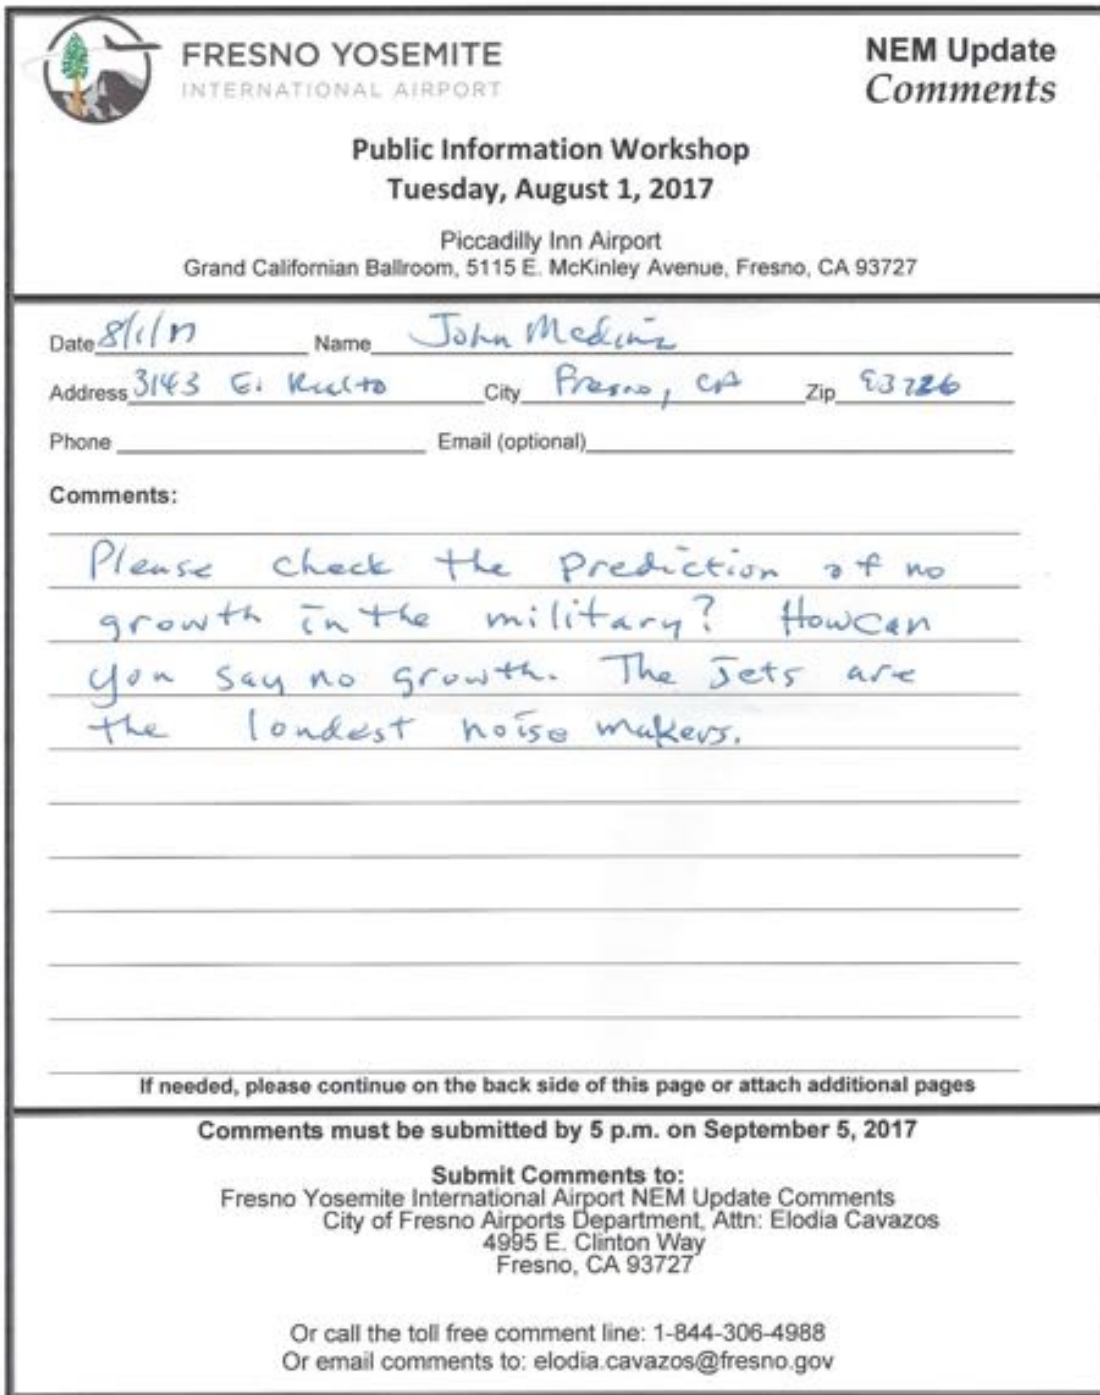 FRESNO YOSEMITE
INTERNATIONAL AIRPORT
NEM Update
Comments
Public Information Workshop
Tuesday, August 1, 2017
Piccadilly Inn Airport
Grand Californian Ballroom, 5115 E. McKinley Avenue, Fresno, CA 93727
Date 8/1/17 Name John Medina
Address 3143 E. City Fresno, CA Zip 93726
Phone Email (optional)
Comments:
Please check the prediction of no
growth in the military? How can
you say no growth. The Jets are
the loudest noise makers.
If needed, please continue on the back side of this page or attach additional pages
Comments must be submitted by 5 p.m. on September 5, 2017
Submit Comments to:
Fresno Yosemite International Airport NEM Update Comments
City of Fresno Airports Department, Attn: Elodia Cavazos
4995 E. Clinton Way
Fresno, CA 93727
Or call the toll free comment line: 1-844-306-4988
Or email comments to: elodia.cavazos@fresno.gov